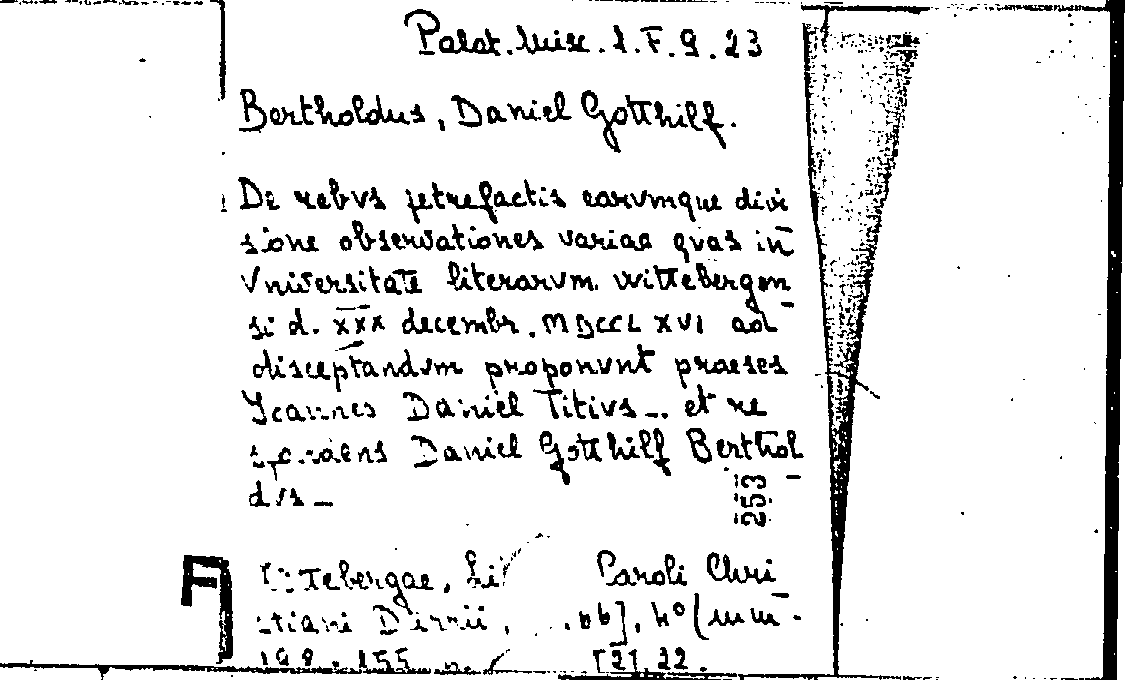 Palat. Misc. 1. F. 9. 23
Bertholdus, Daniel Gotthilf.
De rebvs petrefactis earvmque divi
sione observationes varias qvas in
Vniversitate literarvm wittebergen
si d. XXX decembr. MDCCLXVI ad
disceptandvm proponvnt praeses
Ioannes Daniel Titivs _.. et re
spondens Daniel Gotthilf Berthol
dvs _
253
A
Vittebergae, Caroli Chri
stiani Dürrii, 66], 4º (mm
198 . 155 [2], 22.